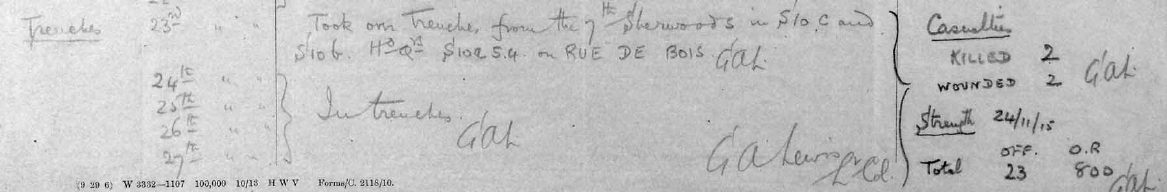 Trenches 23rd " " Took over trenches from the 7th Sherwoods in S10.C and
S10b. Hd Qrs S10a 5.4. on RUE DE BOIS. GAL
24th " "
25th " " In trenches.
26th " " GAL
27th " "
Casualties
KILLED 2
WOUNDED 2 GAL
Strength 24/11/15
OFF. O.R
Total 23 800 GAL
G A Lewis Lt Col.
(9 29 6) W 3332—1107 100,000 10/13 H W V Forms/C. 2118/10.